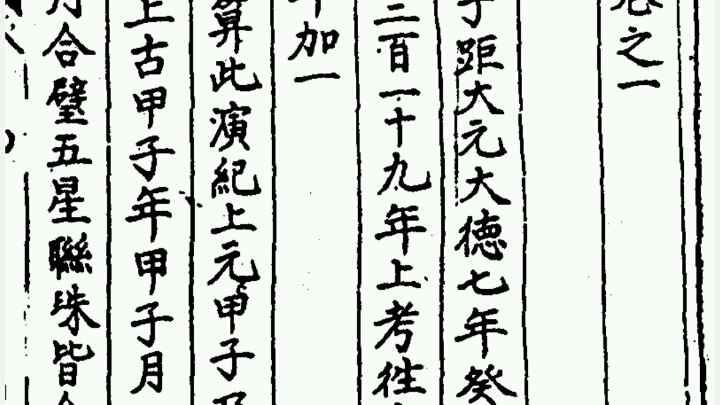 卷之一
子距大元大徳七年癸
三百一十九年上考徃
年加一
算此演紀上元甲子乃
上古甲子年甲子月
月合璧五星聯珠皆合